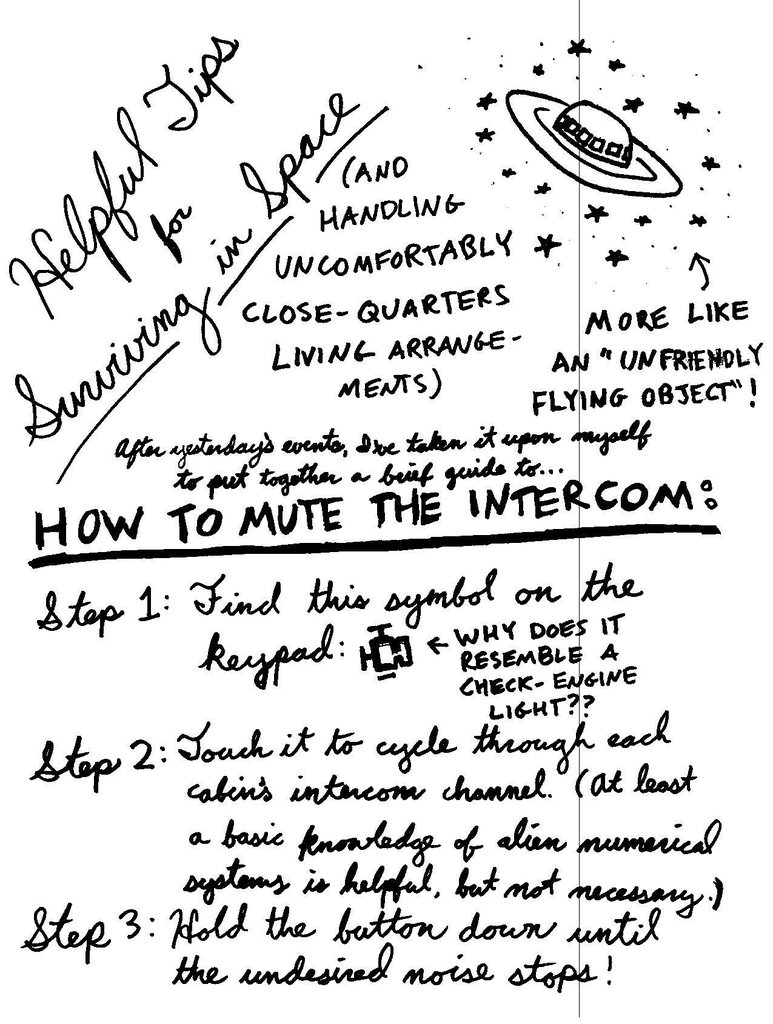 Helpful Tips
for
Surviving in Space
(AND
HANDLING
UNCOMFORTABLY
CLOSE-QUARTERS
LIVING ARRANGE-
MENTS)
MORE LIKE
AN "UNFRIENDLY
FLYING OBJECT"!
After yesterday's events, I've taken it upon myself
to put together a brief guide to...
HOW TO MUTE THE INTERCOM:
Step 1: Find this symbol on the
keypad:
WHY DOES IT
RESEMBLE A
CHECK-ENGINE
LIGHT??
Step 2: Touch it to cycle through each
cabin's intercom channel. (At least
a basic knowledge of alien numerical
systems is helpful, but not necessary.)
Step 3: Hold the button down until
the undesired noise stops!